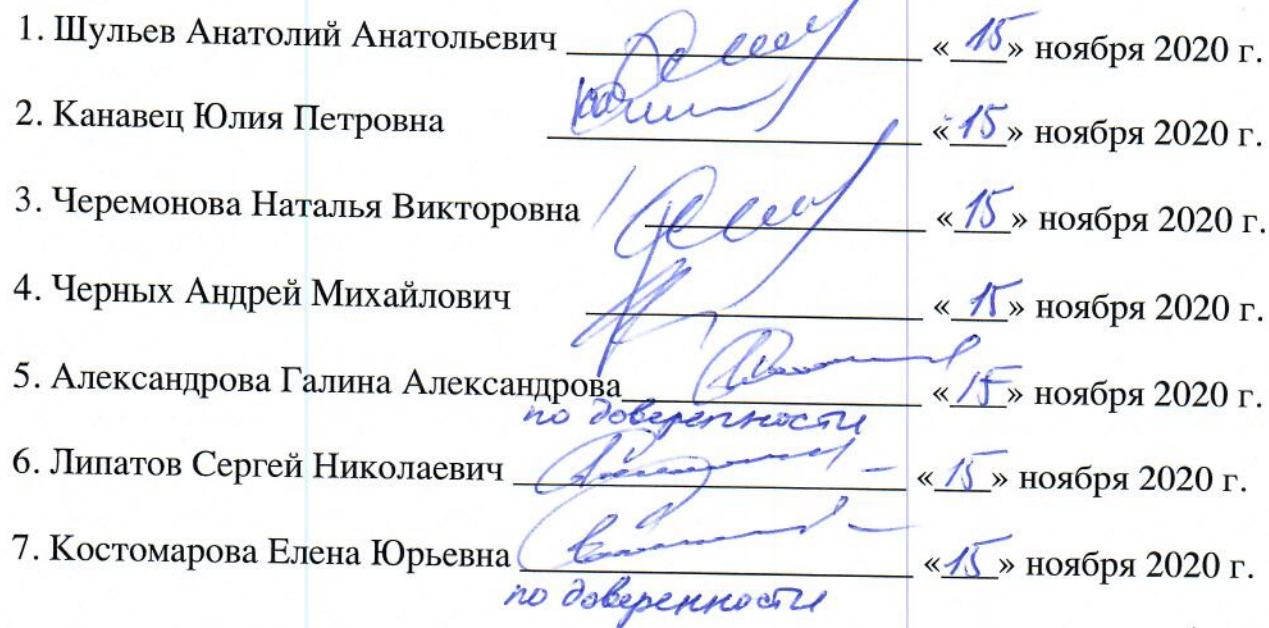 1. Шульев Анатолий Анатольевич «15» ноября 2020 г.
2. Канавец Юлия Петровна «15» ноября 2020 г.
3. Черемонова Наталья Викторовна «15» ноября 2020 г.
4. Черных Андрей Михайлович «15» ноября 2020 г.
5. Александрова Галина Александрова «15» ноября 2020 г.
по доверенности
6. Липатов Сергей Николаевич «15» ноября 2020 г.
7. Костомарова Елена Юрьевна «15» ноября 2020 г.
по доверенности